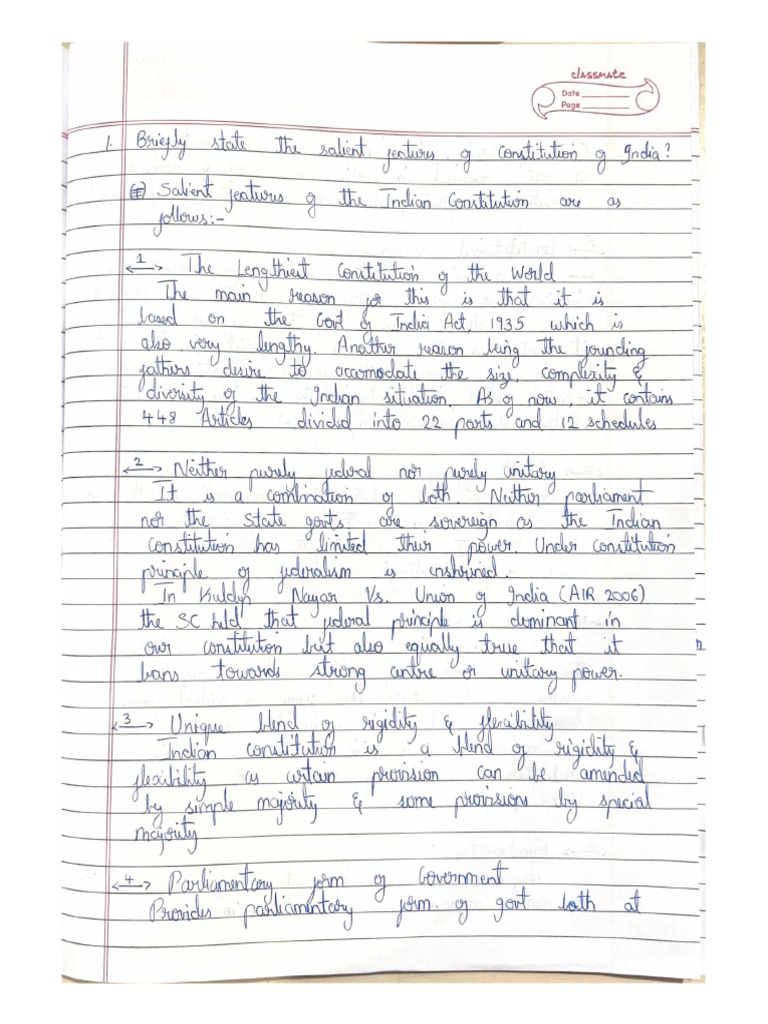 classmate
Date
Page
1. Briefly state the salient features of constitution of India?
Salient features of the Indian Constitution are as
follows:-
1 The Lengthiest Constitution of the World
The main reason for this is that it is
based on the Govt of India Act, 1935 which is
also very lengthy. Another reason being the founding
fathers desire to accomodate the size, complexity &
diversity of the Indian situation. As of now, it contains
448 Articles divided into 22 parts and 12 schedules
2 Neither purely federal nor purely unitary
It is a combination of both. Neither parliament
nor the state govts are sovereign as the Indian
constitution has limited their power. Under constitution
principle of federalism is enshrined.
In Kuldip Nayar Vs. Union of India (AIR 2006)
the SC held that federal principle is dominant in
our constitution but also equally true that it
leans towards strong centre or unitary power.
3 Unique blend of rigidity & flexibility
Indian constitution is a blend of rigidity &
flexibility as certain provision can be amended
by simple majority & some provisions by special
majority
4 Parliamentary form of Government
Provides parliamentary form of govt both at